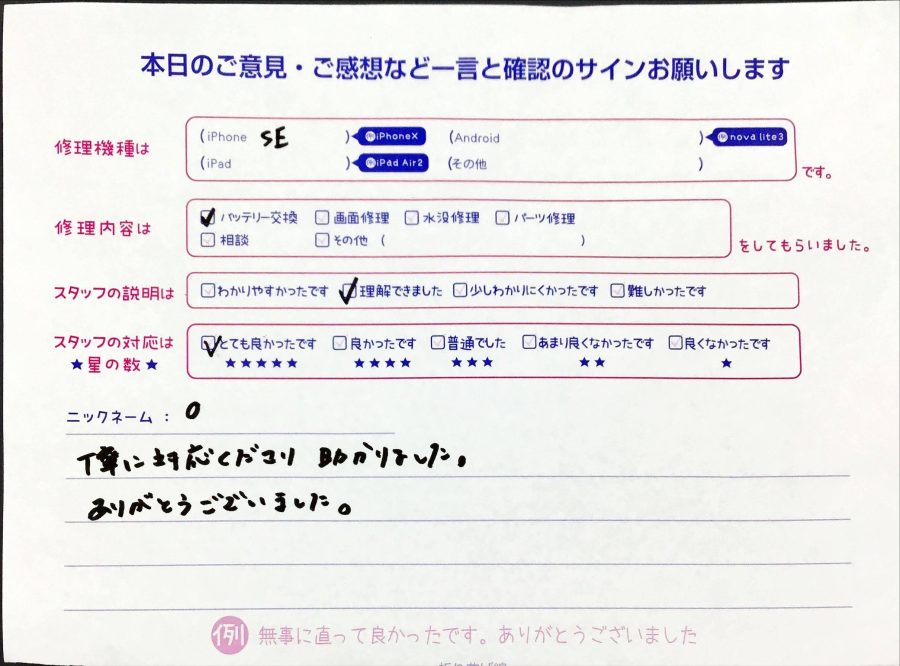 本日のご意見・ご感想など一言と確認のサインお願いします
修理機種は (iPhone SE ) iPhoneX (Android ) nova lite3
(iPad ) iPad Air2 (その他 ) です。
修理内容は バッテリー交換 画面修理 水没修理 パーツ修理
相談 その他 ( ) をしてもらいました。
スタッフの説明は わかりやすかったです 理解できました 少しわかりにくかったです 難しかったです
スタッフの対応は とても良かったです 良かったです 普通でした あまり良くなかったです 良くなかったです
★星の数★ ★★★★★ ★★★★ ★★★ ★★ ★
ニックネーム : O
丁寧に対応くださり 助かりました。
ありがとうございました。
例 無事に直って良かったです。ありがとうございました